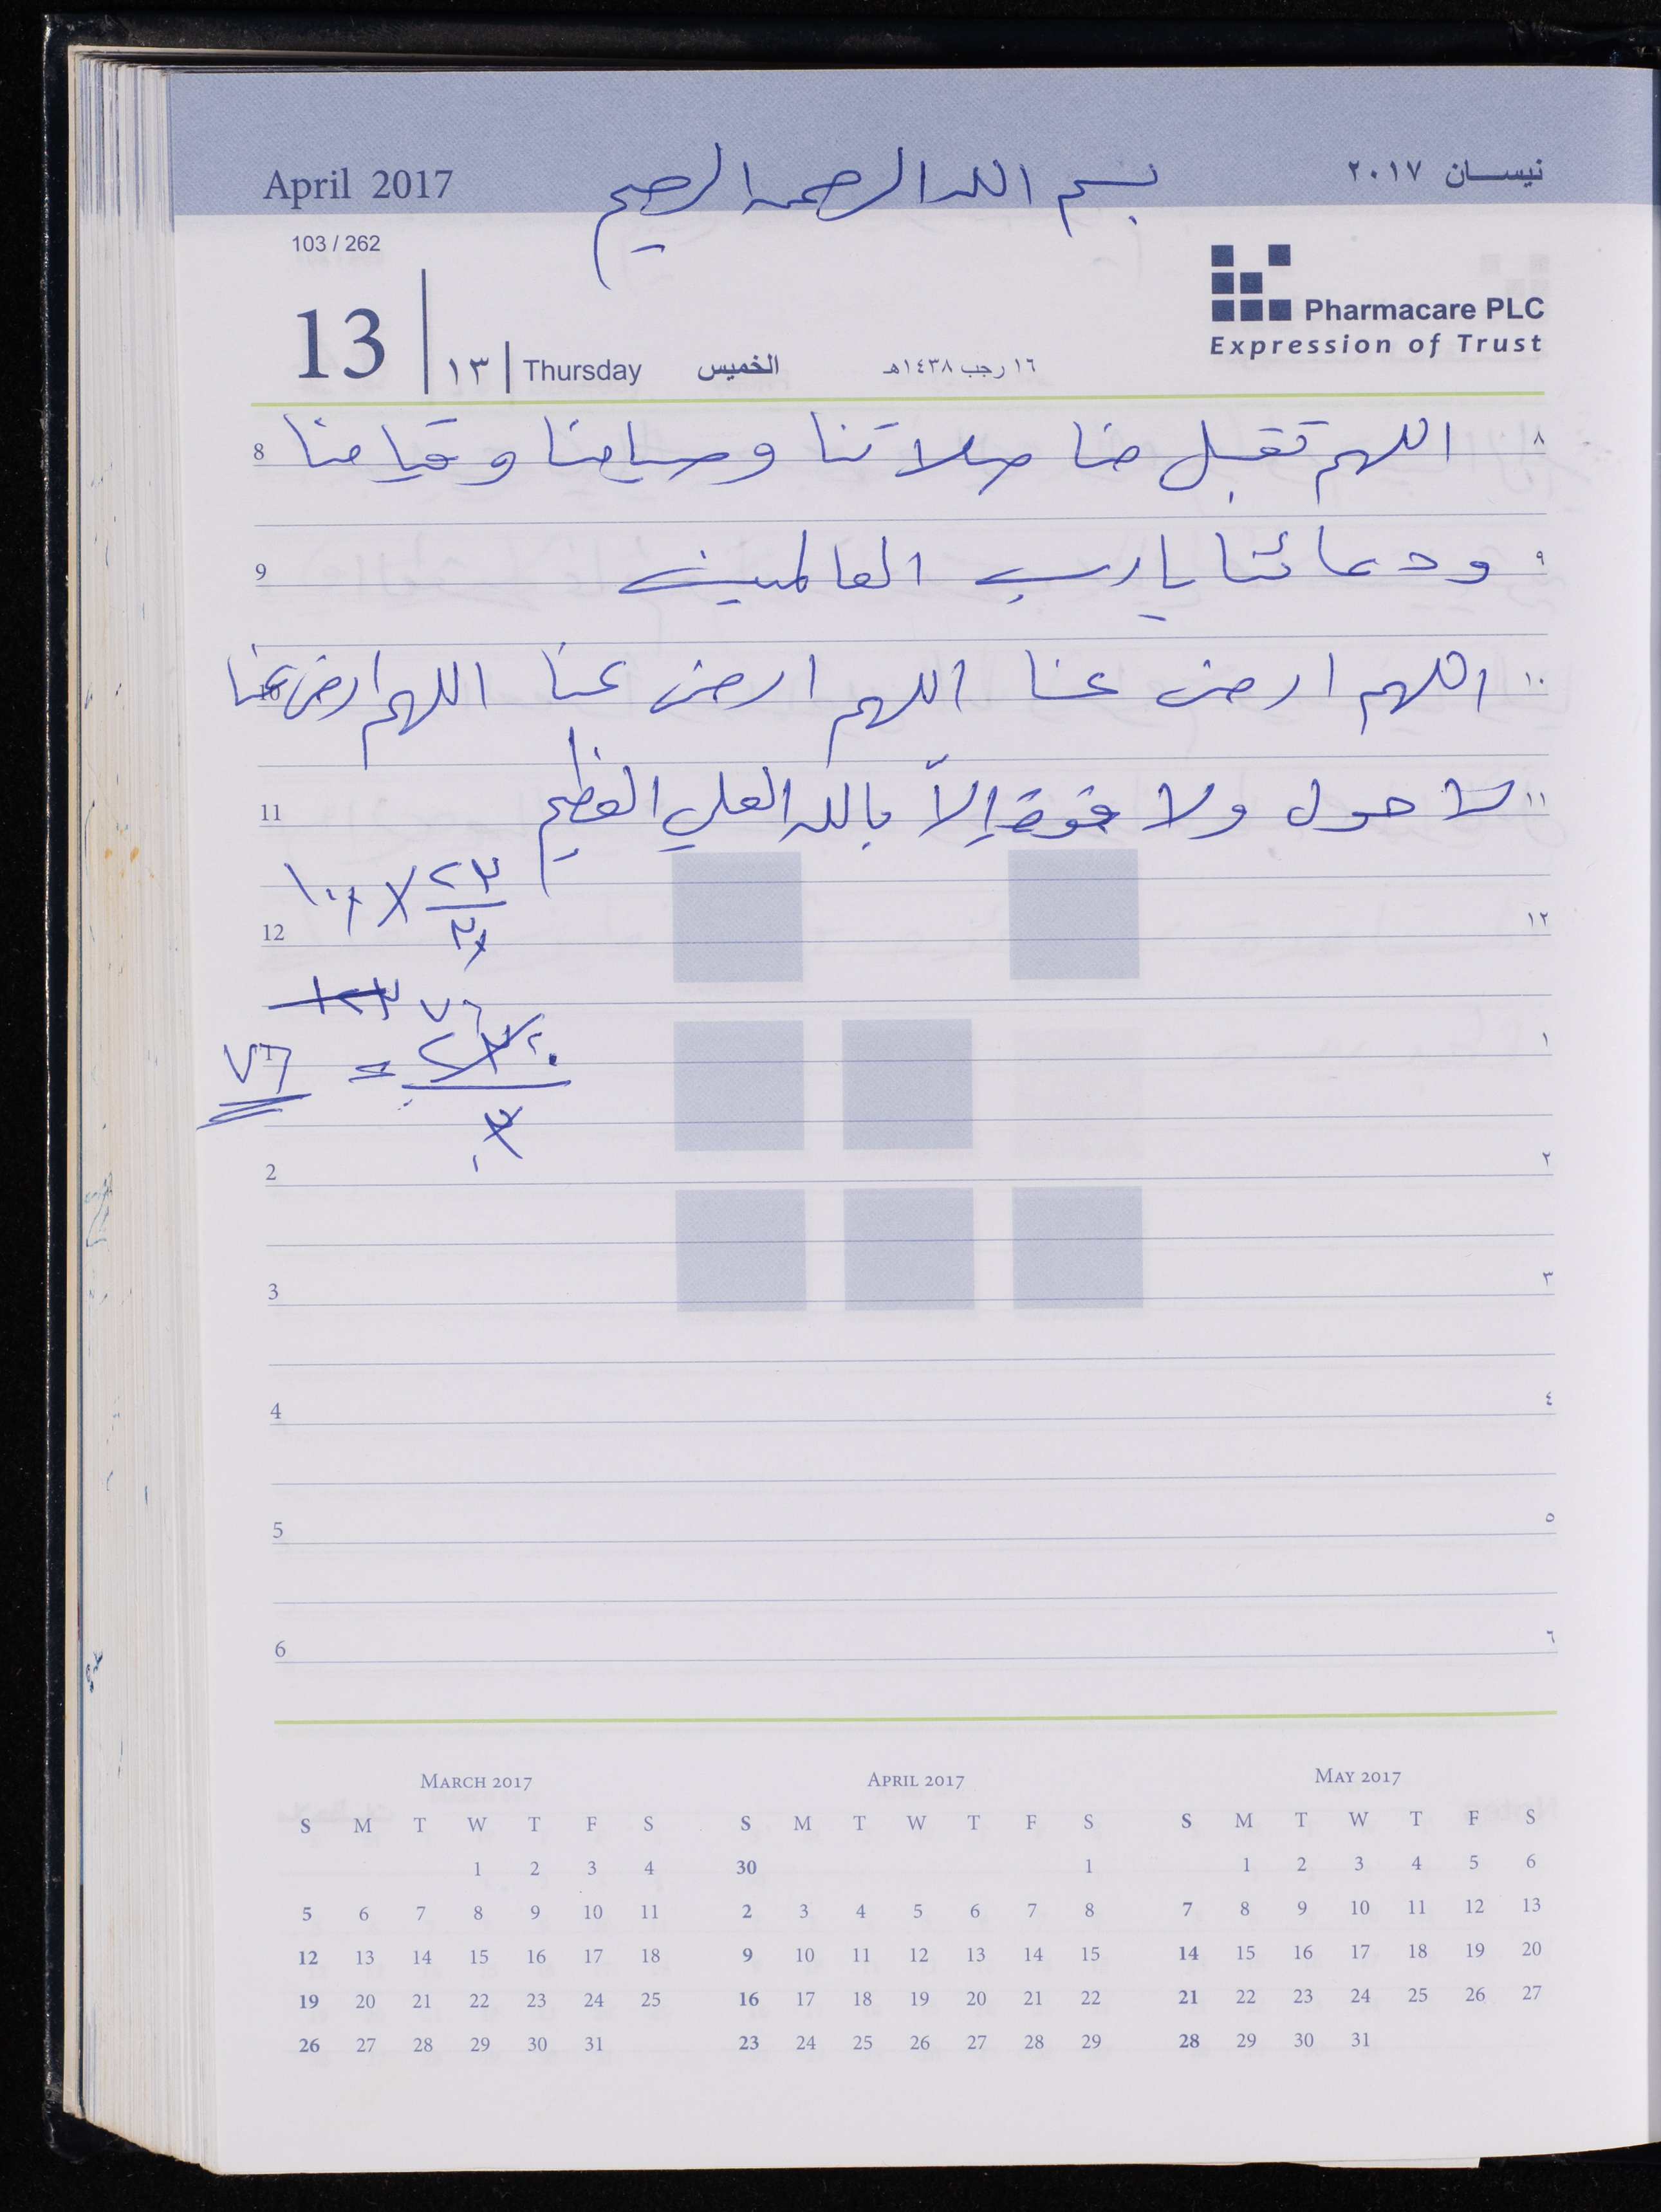 April 2017
بسم الله الرحمن الرحيم
نيسان ٢٠١٧
103 / 262
Pharmacare PLC
Expression of Trust
13 | ١٣ | Thursday الخميس ١٦ رجب ١٤٣٨هـ
8 اللهم تقبل منا صلاتنا وصيامنا وقيامنا ٨
9 ودعائنا يا رب العالمين ٩
10 اللهم ارض عنا اللهم ارض عنا اللهم ارض عنا ١٠
11 لا حول ولا قوة إلاّ بالله العلي العظيم ١١
٢٣
12 ١٢
٧٦
1 ٧٦ = ١
2 ٢
3 ٣
4 ٤
5 ٥
6 ٦
MARCH 2017
S M T W T F S
1 2 3 4
5 6 7 8 9 10 11
12 13 14 15 16 17 18
19 20 21 22 23 24 25
26 27 28 29 30 31
APRIL 2017
S M T W T F S
30 1
2 3 4 5 6 7 8
9 10 11 12 13 14 15
16 17 18 19 20 21 22
23 24 25 26 27 28 29
MAY 2017
S M T W T F S
1 2 3 4 5 6
7 8 9 10 11 12 13
14 15 16 17 18 19 20
21 22 23 24 25 26 27
28 29 30 31